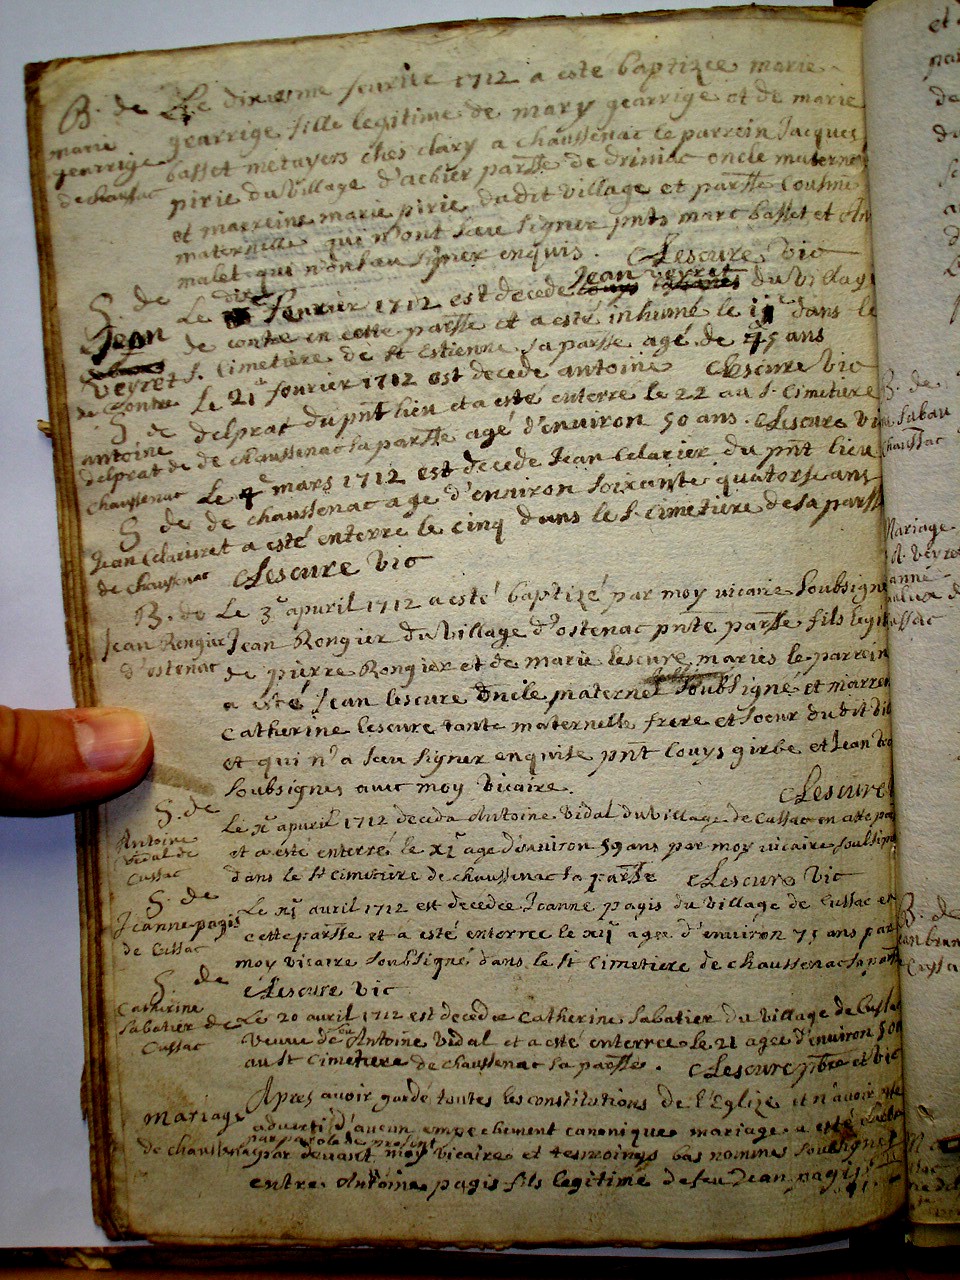 B. de
marie
gearrige
de chaussac
Le dixiesme feurier 1712 a este baptizee marie
gearrige fille legitime de mary gearrige et de marie
basset metayers ches clary a chaussenac le parrein Jacques
pirie du village d'achier parsse de driniac oncle maternel
et marreine marie pirie du dit village et parsse cousine
maternelle qui n'ont sceu signer pnts marc basset et An
malet qui n'ont sceu signer enquis. Lescure vic
S. de
Jean
Veyret
de Contre
Le dix feurier 1712 est decede Jean veyret du villag
de contre en cette parsse et a esté inhumé le 11 dans le
S. Cimetière de St Estienne sa parsse agé de 45 ans
S. de
antoine
delprat de
chaussenac
Le 21 feurier 1712 est decede antoine Lescure vic
delprat du pnt lieu et a esté enterré le 22 au S. Cimetiere
de chaussenac sa parsse agé d'enuiron 50 ans. Lescure vi
S. de
Jean Celarier
de chaussenac
Le 4 mars 1712 est decede Jean Celarier du pnt lieu
de chaussenac age d'enuiron soixante quatorse ans
et a esté enterre le cinq dans le S. Cimetiere de sa parsse
Lescure vic
B. de
Jean Rongier
d'ostenac
Le 3 apuril 1712 a esté baptizé par moy vicaire soubsigne
Jean Rongier du village d'ostenac pnte parsse fils legit
de pierre Rongier et de marie lescure maries le parrein
a esté Jean lescure oncle maternel soubsigné et marren
Catherine lescure tante maternelle frere et soeur du dit
et qui n'a sceu signer enquise pnt Louys girbe et Jean
soubsignes avec moy vicaire. Lescure
S. de
Antoine
vidal de
Cussac
Le x apuril 1712 deceda Antoine vidal du village de Cussac en cette pa
et a esté enterré le xi age d'enuiron 59 ans par moy vicaire soubsig
dans le St Cimetiere de chaussenac sa parsse Lescure vic
S. de
Jeanne pagis
de Cussac
Le xi avril 1712 est decedee Jeanne pagis du village de Cussac en
cette parsse et a esté enterree le xii agee d'enuiron 75 ans par
moy vicaire soubsigné dans le St Cimetiere de chaussenac sa parsse
Lescure vic
S. de
Catherine
Sabatier de
Cussac
Le 20 avril 1712 est decedee Catherine Sabatier du village de Cussac
veuue de feu Antoine vidal et a esté enterree le 21 agee d'enuiron 50
au St Cimetiere de chaussenac sa parsse. Lescure pbre et vic
mariage
de chaussenac
Apres auoir gardé toutes les constitutions de l'Eglize et n'auoir este
aduerti d'aucun empechement canonique mariage a esté
par parole de present
par deuant moy vicaire et tesmoings bas nommes soubsignes
entre Antoine pagis fils legitime de feu Jean pagis